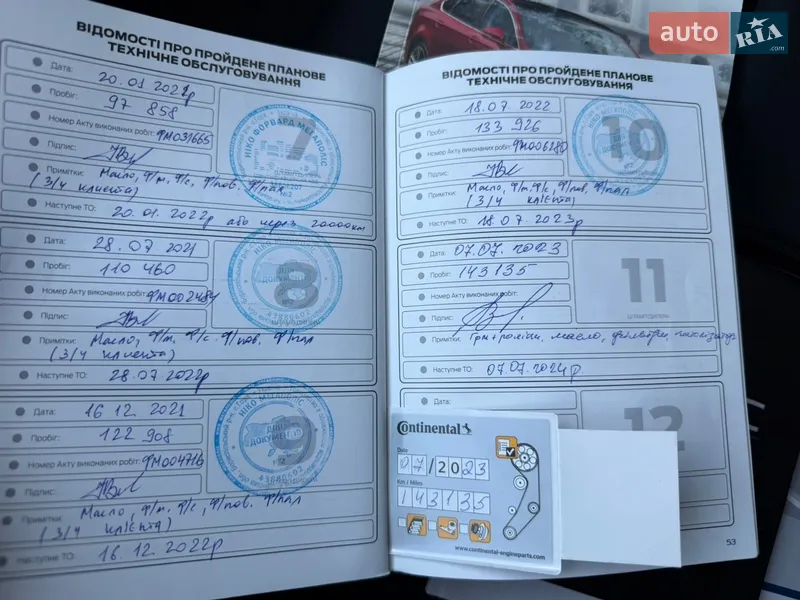 auto RIA .com
ВІДОМОСТІ ПРО ПРОЙДЕНЕ ПЛАНОВЕ
ТЕХНІЧНЕ ОБСЛУГОВУВАННЯ
Дата: 20.01 2022р
Пробіг: 97 858
Номер Акту виконаних робіт: ФМ031665
Підпис:
Примітки: Масло, Ф/м. Ф/с, Ф/пов. Ф/пал
(З/Ч клиента)
Наступне ТО: 20.01 2022р або через 20000км
7
НІКО ФОРВАРД МЕГАПОЛІС
Дата: 28.07 2021
Пробіг: 110 460
Номер Акту виконаних робіт: ФМ002484
Підпис:
Примітки: Масло, Ф/м. Ф/с. Ф/пов. Ф/пал
(З/Ч клиента)
Наступне ТО: 28.07 2022р
8
ДЛЯ ДОКУМЕНТІВ
43880602
Дата: 16 12 2021
Пробіг: 122 908
Номер Акту виконаних робіт: ФМ004716
Підпис:
Примітки: Масло, Ф/м. Ф/с, Ф/пов. Ф/пал
(З/Ч клієнта)
Наступне ТО: 16.12 2022р
9
НІКО МЕГАПОЛІС
ДЛЯ ДОКУМЕНТІВ
43880602
ВІДОМОСТІ ПРО ПРОЙДЕНЕ ПЛАНОВЕ
ТЕХНІЧНЕ ОБСЛУГОВУВАННЯ
Дата: 18.07 2022
Пробіг: 133 926
Номер Акту виконаних робіт: ФМ006280
Підпис:
Примітки: Масло, Ф/м. Ф/с, Ф/пов. Ф/пал
(З/Ч клієнта)
Наступне ТО: 18.07 2023р
10
Дата: 07.07. 2023
Пробіг: 143135
Номер Акту виконаних робіт:
Підпис:
Примітки: Грм+ролики, масло, фільтри,
Наступне ТО: 07.07 2024р
11
12
Continental
Date
07/2023
Km / Miles
143135
www.continental-engineparts.com
53